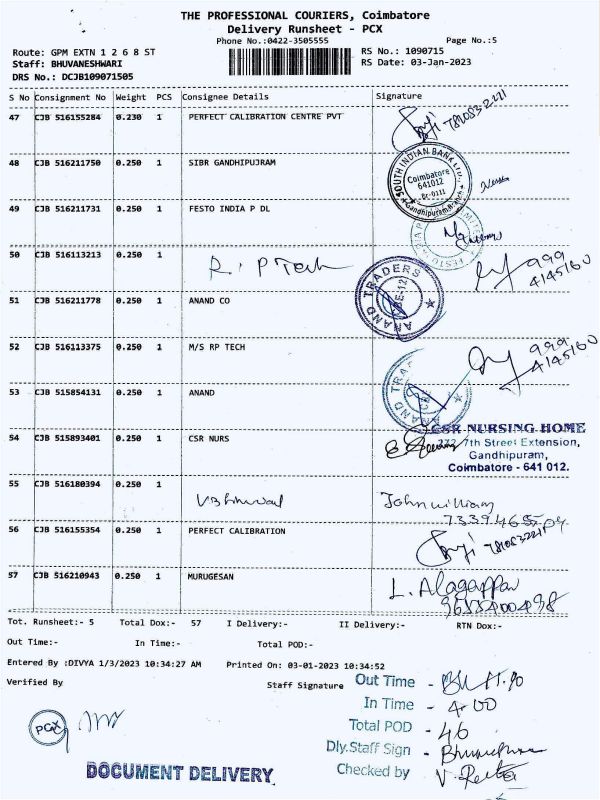 THE PROFESSIONAL COURIERS, Coimbatore
Delivery Runsheet - PCX
Phone No.:0422-3505555
Page No.:5
Route: GPM EXTN 1 2 6 8 ST
RS No.: 1090715
Staff: BHUVANESHWARI
RS Date: 03-Jan-2023
DRS No.: DCJB109071505
S No Consignment No Weight PCS Consignee Details Signature
47 CJB 516155284 0.230 1 PERFECT CALIBRATION CENTRE PVT
48 CJB 516211750 0.250 1 SIBR GANDHIPUJRAM
SOUTH INDIAN BANK LTD.
Coimbatore
641012
Br-0111
Gandhipuram Branch
49 CJB 516211731 0.250 1 FESTO INDIA P DL
50 CJB 516113213 0.250 1 R. P Tech 999
4145160
51 CJB 516211778 0.250 1 ANAND CO
ANAND TRADERS
CBE-12
52 CJB 516113375 0.250 1 M/S RP TECH 999
4145160
53 CJB 515854131 0.250 1 ANAND
54 CJB 515893401 0.250 1 CSR NURS
CSR NURSING HOME
232, 7th Street Extension,
Gandhipuram,
Coimbatore - 641 012.
55 CJB 516180394 0.250 1 John william
56 CJB 516155354 0.250 1 PERFECT CALIBRATION
57 CJB 516210943 0.250 1 MURUGESAN L. Alagappan
Tot. Runsheet:- 5 Total Dox:- 57 I Delivery:- II Delivery:- RTN Dox:-
Out Time:- In Time:- Total POD:-
Entered By :DIVYA 1/3/2023 10:34:27 AM Printed On: 03-01-2023 10:34:52
Verified By Staff Signature
Out Time -
In Time - 4.00
Total POD - 46
Dly.Staff Sign -
Checked by -
PCX
DOCUMENT DELIVERY